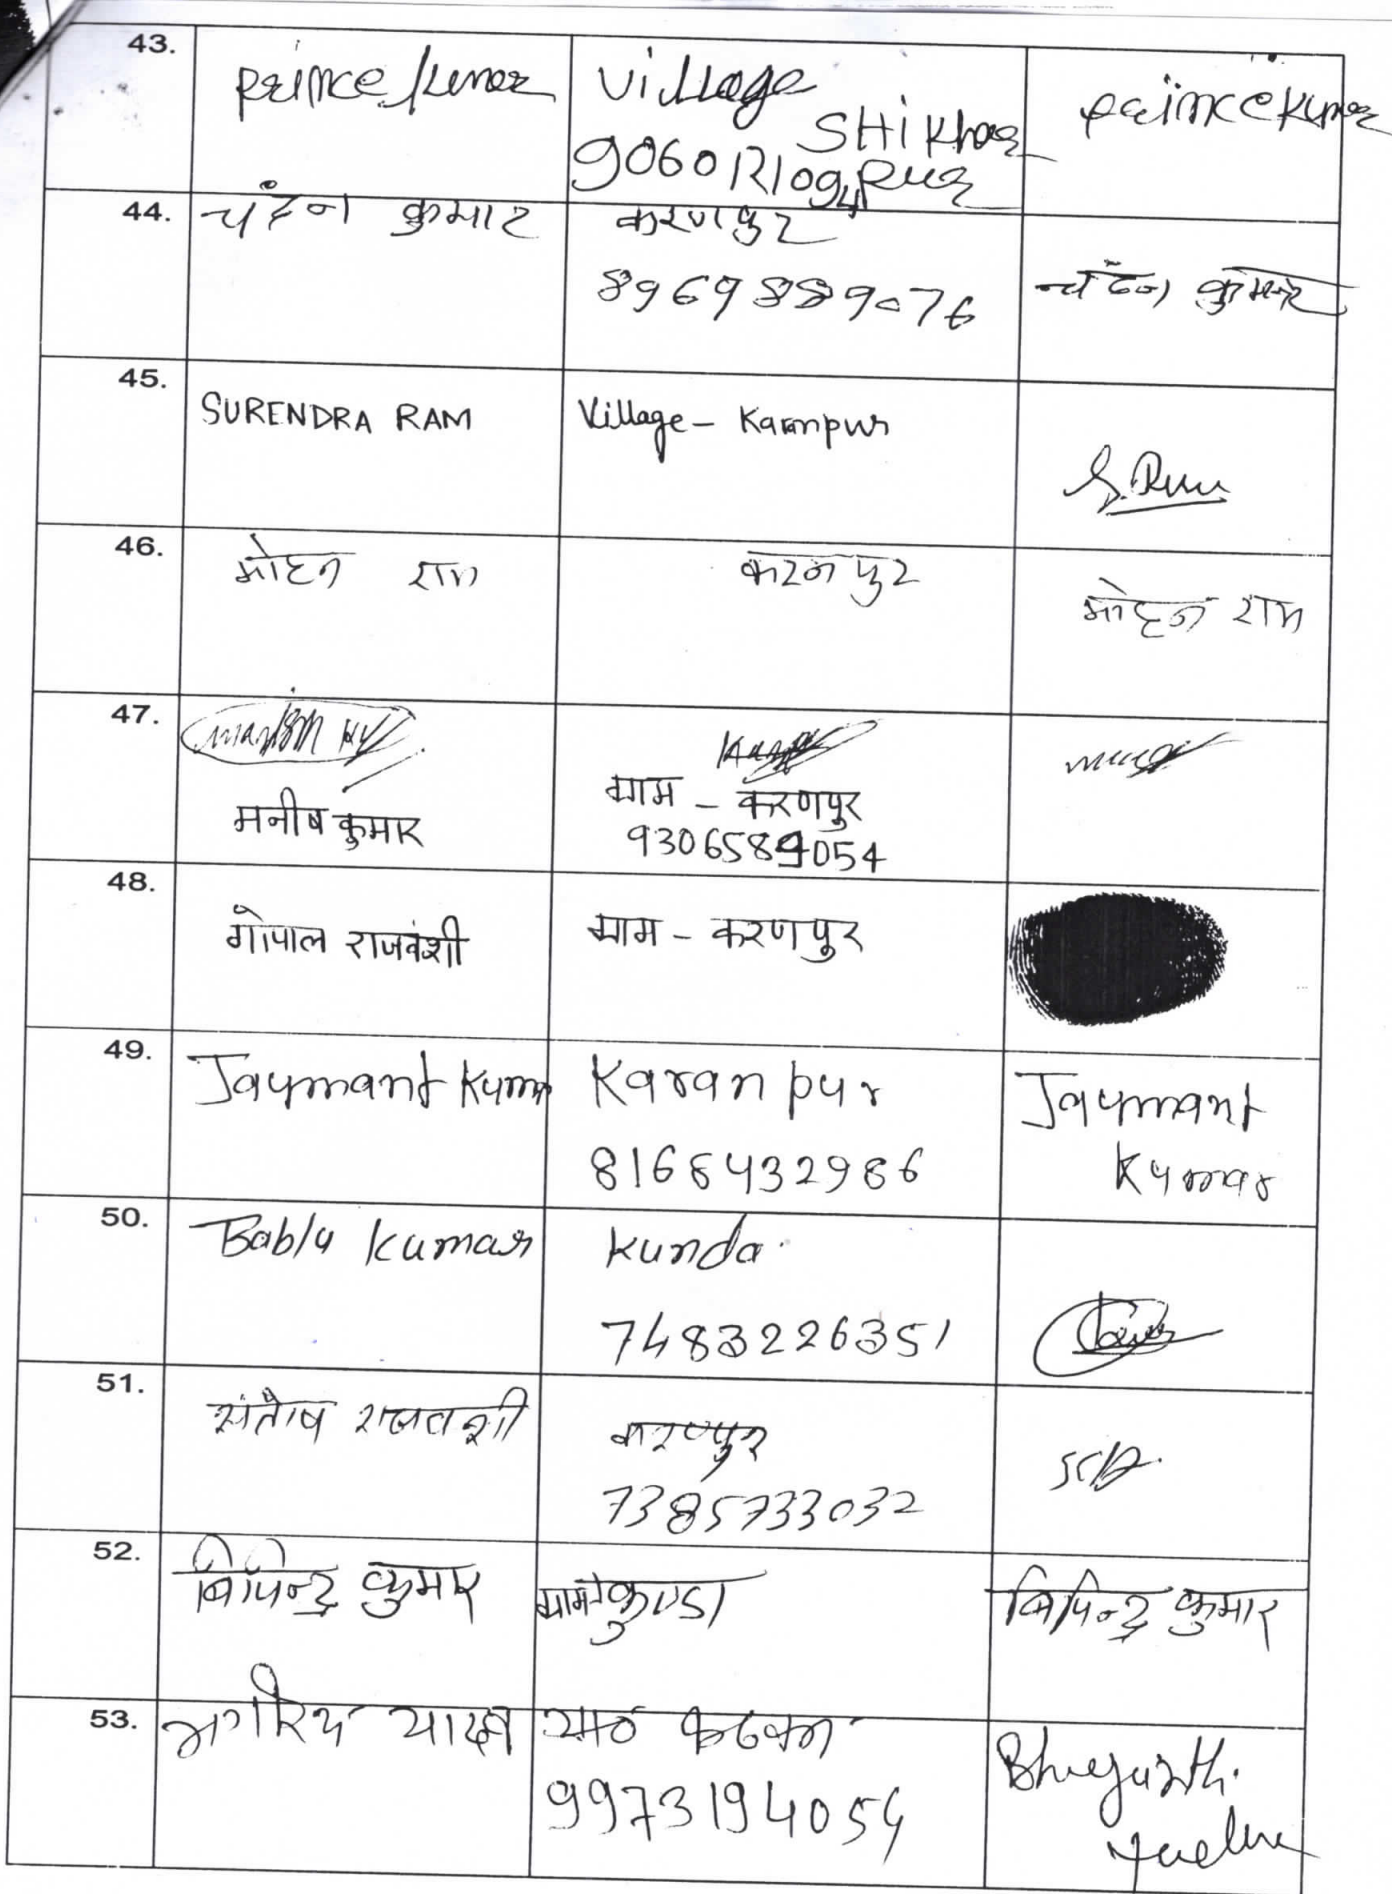 43. Prince Kumar Village Prince Kumar
SHIKhar
9060121094 Pur
44. चंदन कुमार करणपुर
8969889076 चंदन कुमार
45.
SURENDRA RAM Village - Karnpur
S. Ram
46. मोहन राम करनपुर मोहन राम
47. Manish
मनीष कुमार ग्राम - करणपुर
9306589054
48.
गोपाल राजवंशी ग्राम - करणपुर
49. Jaymant Kumar Karanpur Jaymant
8168432986 Kumar
50. Bablu Kumar Kunda
7483226351
51. संतोष राजवंशी करणपुर
7385733032
52. बिपिन्द्र कुमार ग्राम कुण्डा बिपिन्द्र कुमार
53. भगीरथ यादव
9973194054